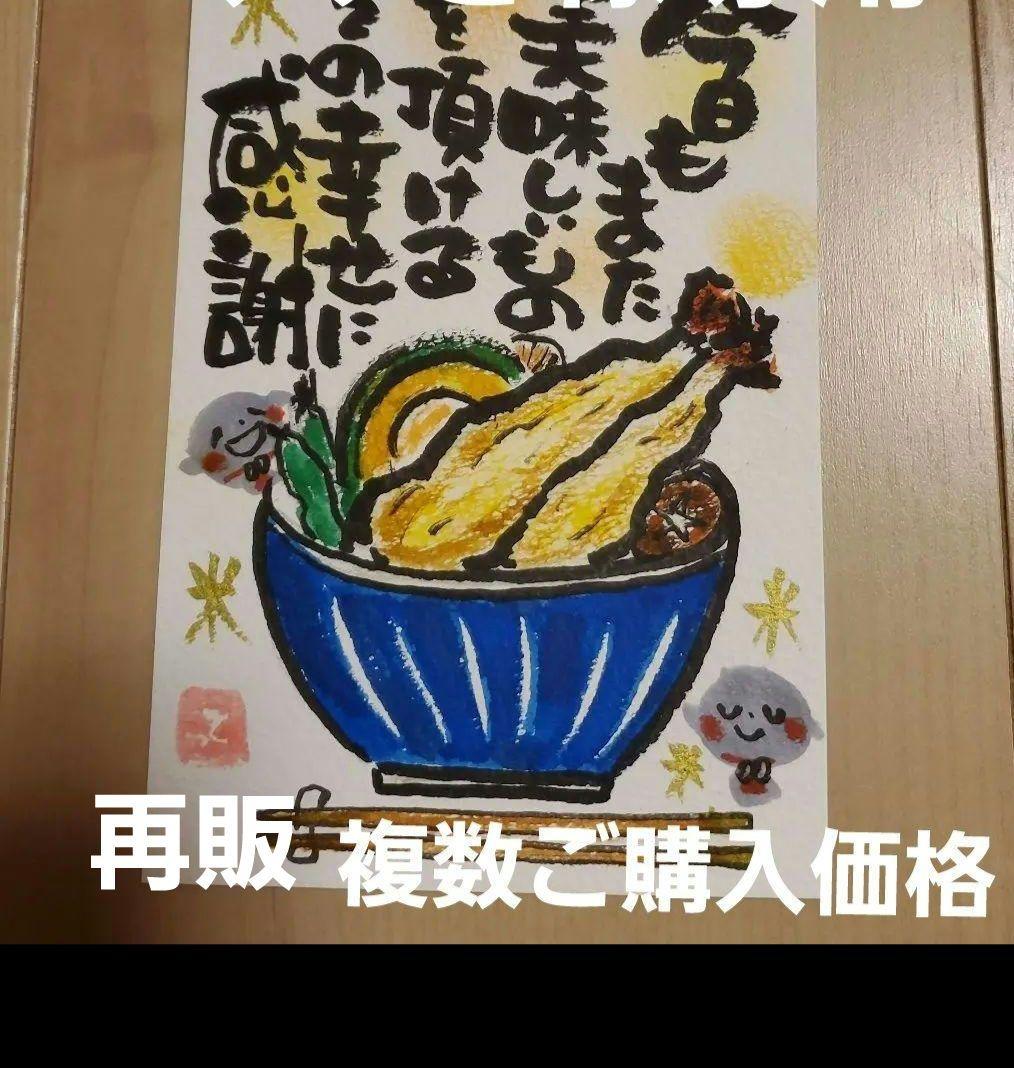 今日も
また
美味しいもの
を頂ける
の幸せに
感謝
再販 複数ご購入価格